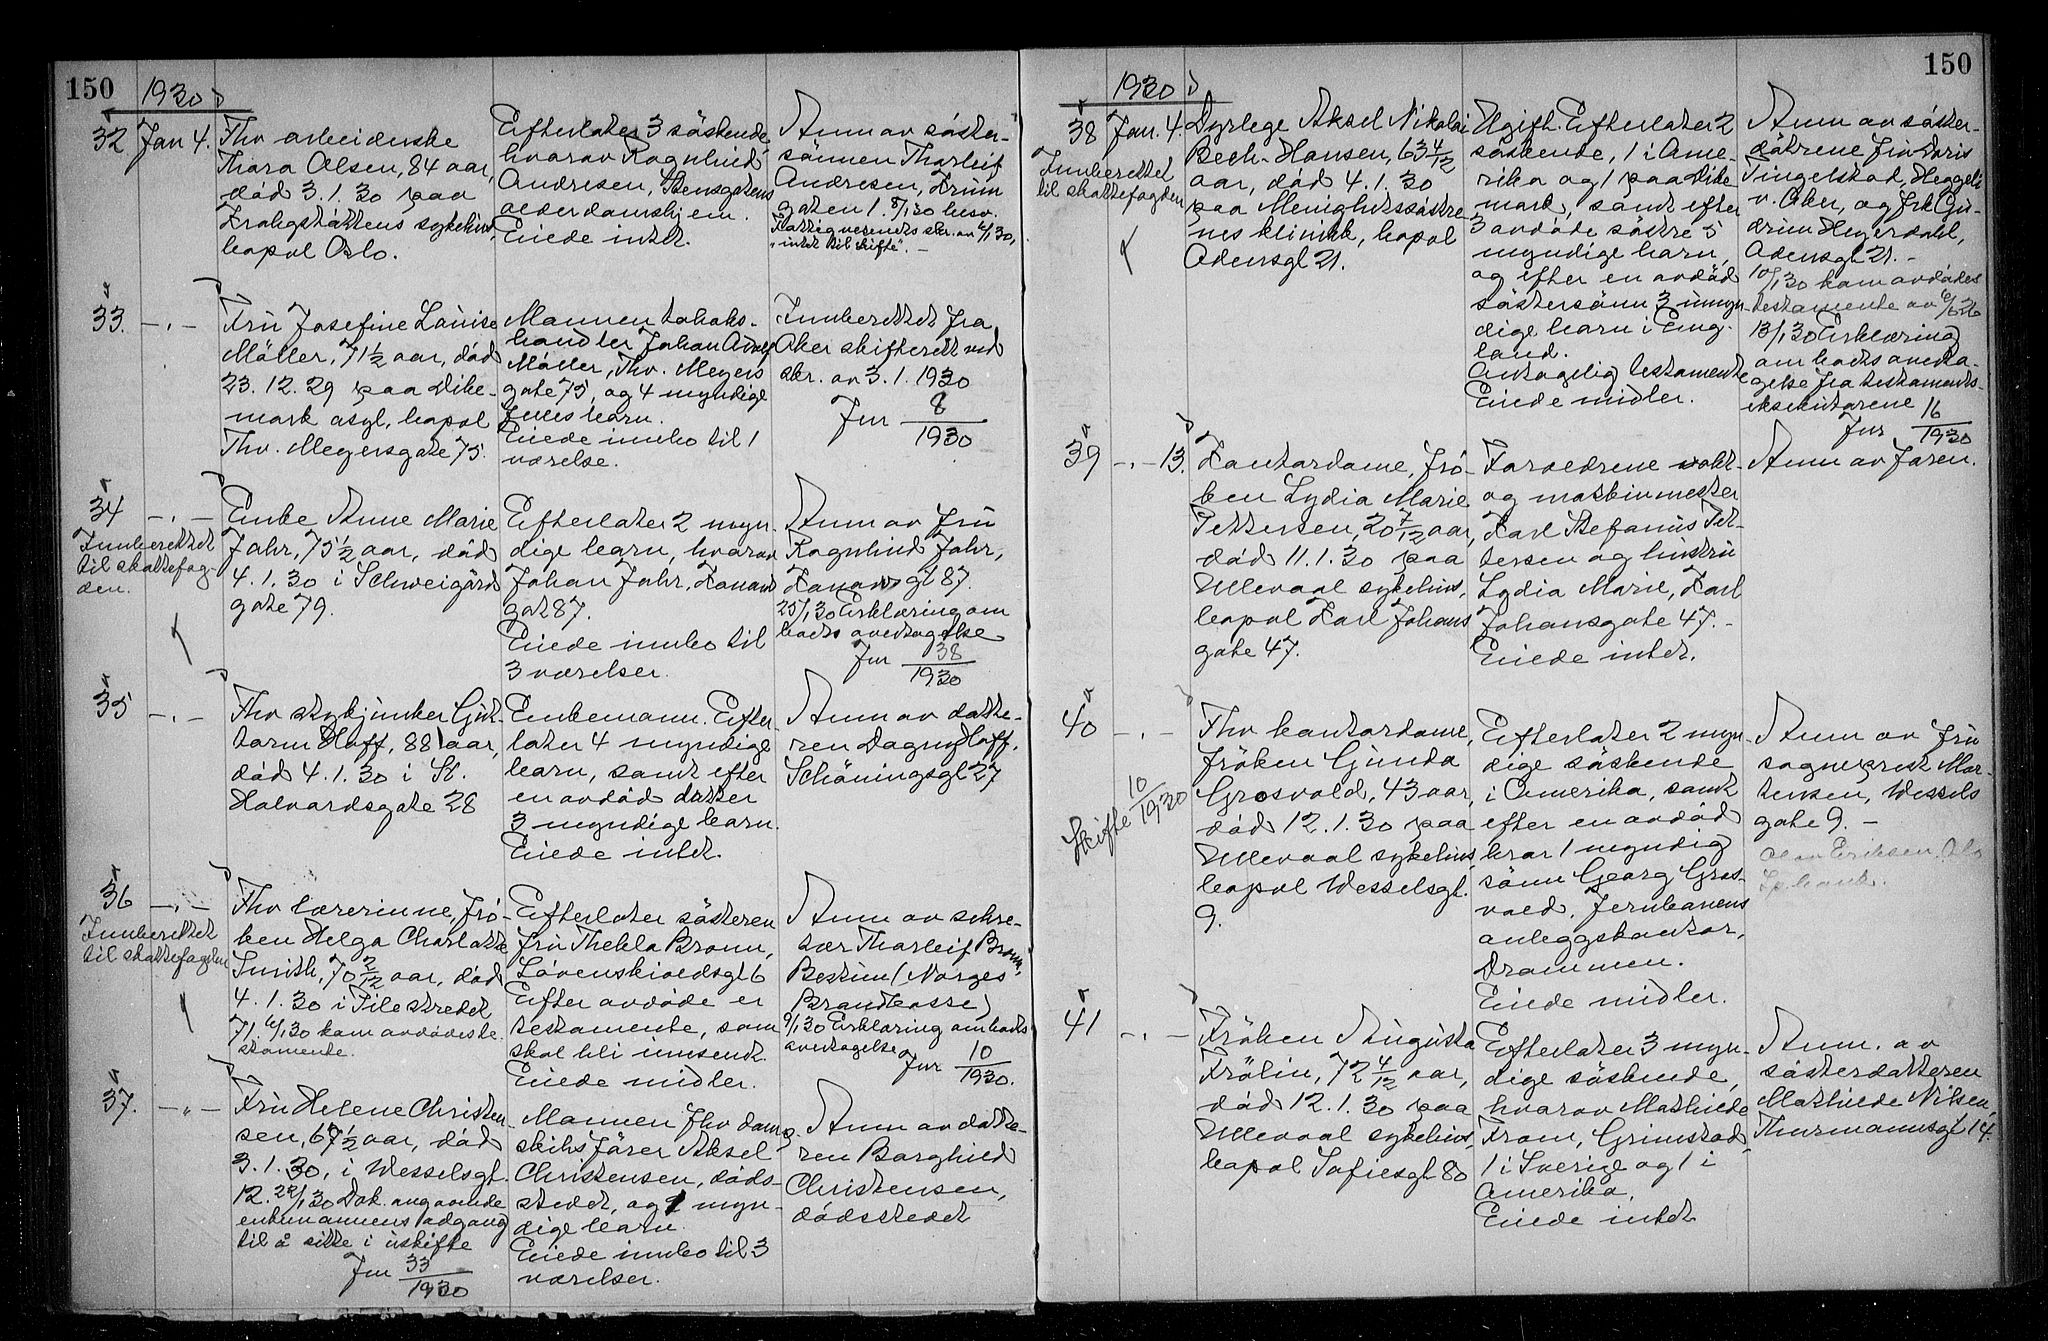 150
1930
32 Jan 4.
Thv arbeiderske
Thora Olsen, 84 aar,
død 3.1.30 paa
Krohgstøttens sykehus,
bopæl Oslo.
Efterlater 3 søskende
hvorav Ragnhild
Andresen, Stensgatens
alderdomshjem.
Eiede intet.
Anm av søster-
sønnen Thorleif
Andresen,
gaten 1. 8/1 30 besv.
Fattigvesenets skr. av 6/1 30,
"intet til skifte". -
33. -"-
Fru Josefine Louise
Møller, 71 1/2 aar, død
23.12.29 paa Dike-
mark asyl, bopæl
Thv. Meyersgate 75.
Mannen tobaks-
handler Johan Adolf
Møller, Thv. Meyers
gate 75, og 4 myndige
felles barn.
Eiede innbo til 1
værelse.
Innberettet fra
Aker skifterett ved
skr. av 3.1.1930
Jnr 8/1930
34 -"-
Innberettet
til skattefog-
den.
Enke Anne Marie
Jahr, 75 1/2 aar, død
4.1.30 i Schweigård
gate 79.
Efterlater 2 myn-
dige barn, hvorav
Johan Jahr,
gat 87.
Eiede innbo til
3 værelser.
Anm av fru
Ragnhild Jahr,
gt 87.
25/1 30 Erklæring om
bodts overtagelse
Jnr 38/1930
35 -"-
Thv stykjunker Gut-
torm Hoff, 88 aar,
død 4.1.30 i St.
Halvardsgate 28
Enkemann. Efter-
later 4 myndige
barn, samt efter
en avdød datter
3 myndige barn.
Eiede intet.
Anm av datte-
ren Dagny Hoff,
Schøningsgt 27
36 -"-
Innberettet
til skattefogden
Thv lærerinne, frø-
ken Helga Charlotte
Smith, 70 2/12 aar, død
4.1.30 i Pilestredet
71, 6/1 30 kom avdødes te-
stamente.
Efterlater søsteren
fru Thekla Bronn,
Løvenskioldsgt 6
Efter avdøde er
testamente, som
skal bli innsendt.
Eiede midler.
Anm av sekre-
tær Thorleif Bronn,
Bestum (Norges
Brandkasse)
9/1 30 Erklæring om bodts
overtagelse
Jnr 10/1930.
37. -"-
Fru Helene Christen-
sen, 67 1/2 aar, død
3.1.30, i Wesselsgt.
12. 22/1 30 Dok. angaaende
enkemannens adgang
til å sitte i uskifte
Jnr 33/1930
Mannen fhv damp-
skibsfører Aksel
Christensen, døds-
stedet, og 1 myn-
dige barn.
Eiede innbo til 3
værelser.
Anm av datte-
ren Borghild
Christensen,
dødsstedet
150
1930
38 Jan. 4.
Innberettet
til skattefogden
Dyrlege Aksel Nikolai
Bech-Hansen, 63 4/12
aar, død 4.1.30
paa Menighetssøstre-
nes klinikk, bopæl
Odensgt 21.
Ugift. Efterlater 2
søskende, 1 i Ame-
rika og 1 paa Dike-
mark, samt efter
3 avdøde søstre 5
myndige barn,
og efter en avdød
søstersønn 3 umyn-
dige barn i Eng-
land.
Antagelig testamente
Eiede midler.
Anm av søster-
døtrene fru Doris
Tingelstad, Heggeli
v. Aker, og frk Gu-
drun Heyerdahl,
Odensgt 21. -
10/1 30 kom avdødes
testamente av 6/6 26
13/1 30 Erklæring
om bodts overta-
gelse fra testaments-
eksekutorene
Jnr 16/1930
39 -"- 13.
Kontordame, frø-
ken Lydia Marie
Pettersen, 20 7/12 aar,
død 11.1.30 paa
Ullevaal sykehus,
bopæl Karl Johans
gate 47.
Forældrene vakt-
og maskinmester
Karl Stefanus Pet-
tersen og hustru
Lydia Marie, Karl
Johansgate 47. -
Eiede intet.
Anm av faren.
40 -"-
Skifte 10/1930
Thv kontordame,
frøken Gunda
Grosvold, 43 aar,
død 12.1.30 paa
Ullevaal sykehus,
bopæl Wesselsgt.
9.
Efterlater 2 myn-
dige søskende
i Amerika, samt
efter en avdød
bror 1 myndig
sønn Georg Gros-
vold, Jernbanens
anleggskontor,
Drammen.
Eiede midler.
Anm av fru
sogneprest Mor-
tensen, Wessels
gate 9. -
Eriksen, Oslo
Sp.bank.
41 -"-
Frøken Augusta
Frölin, 72 4/12 aar,
død 12.1.30 paa
Ullevaal sykehus,
bopæl Sofiesgt 80
Efterlater 3 myn-
dige søskende,
hvorav Mathilde
From, Grimstad,
1 i Sverige og 1 i
Amerika.
Eiede intet
Anm. av
søsterdatteren
Mathilde Nilsen,
Thurmannsgt 14.